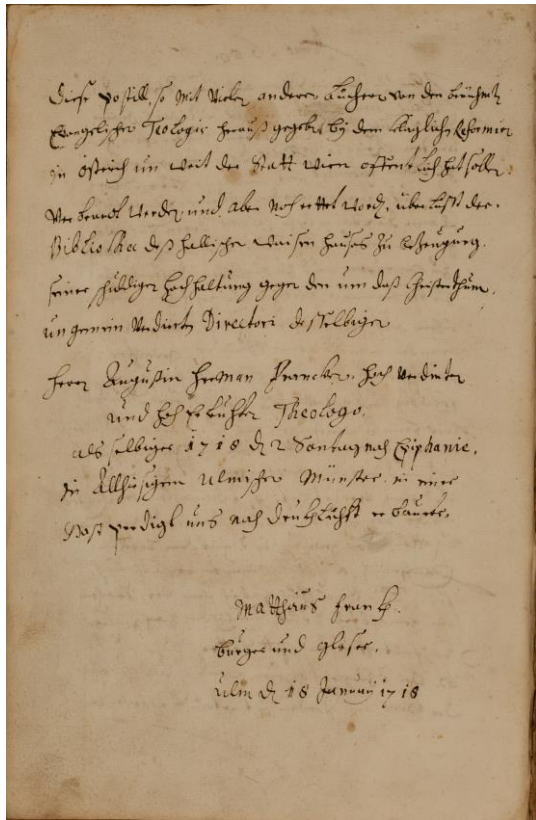 Diese postill, so mit vielen anderen Bücheren von den berühmte
Evangelischen Teologis herauß gegeben bey dem kläglichen Reformier
in östreich un weit der Statt wien öffentlich hat sollen
verbrandt werden und aber noch errettet word, über lüfft der
Bibliothec deß hallischen waisen hauses zu bezeugung
seiner schuldigen hochhaltung gegen den um daß Christenthum
ungemein verdienten Directori desselbigen
Herrn Augustin Herman Francken, hoch verdienten
und hocherleuchten Theologo,
als selbiger 1718 d 2 Sontag nach Epiphanie,
in allhiesigem ulmischen Münster in einer
Gast predigt uns nachdrücklichst erbauete,
Matthäus Franck.
burger und glaser,
Ulm d 18 January 1718